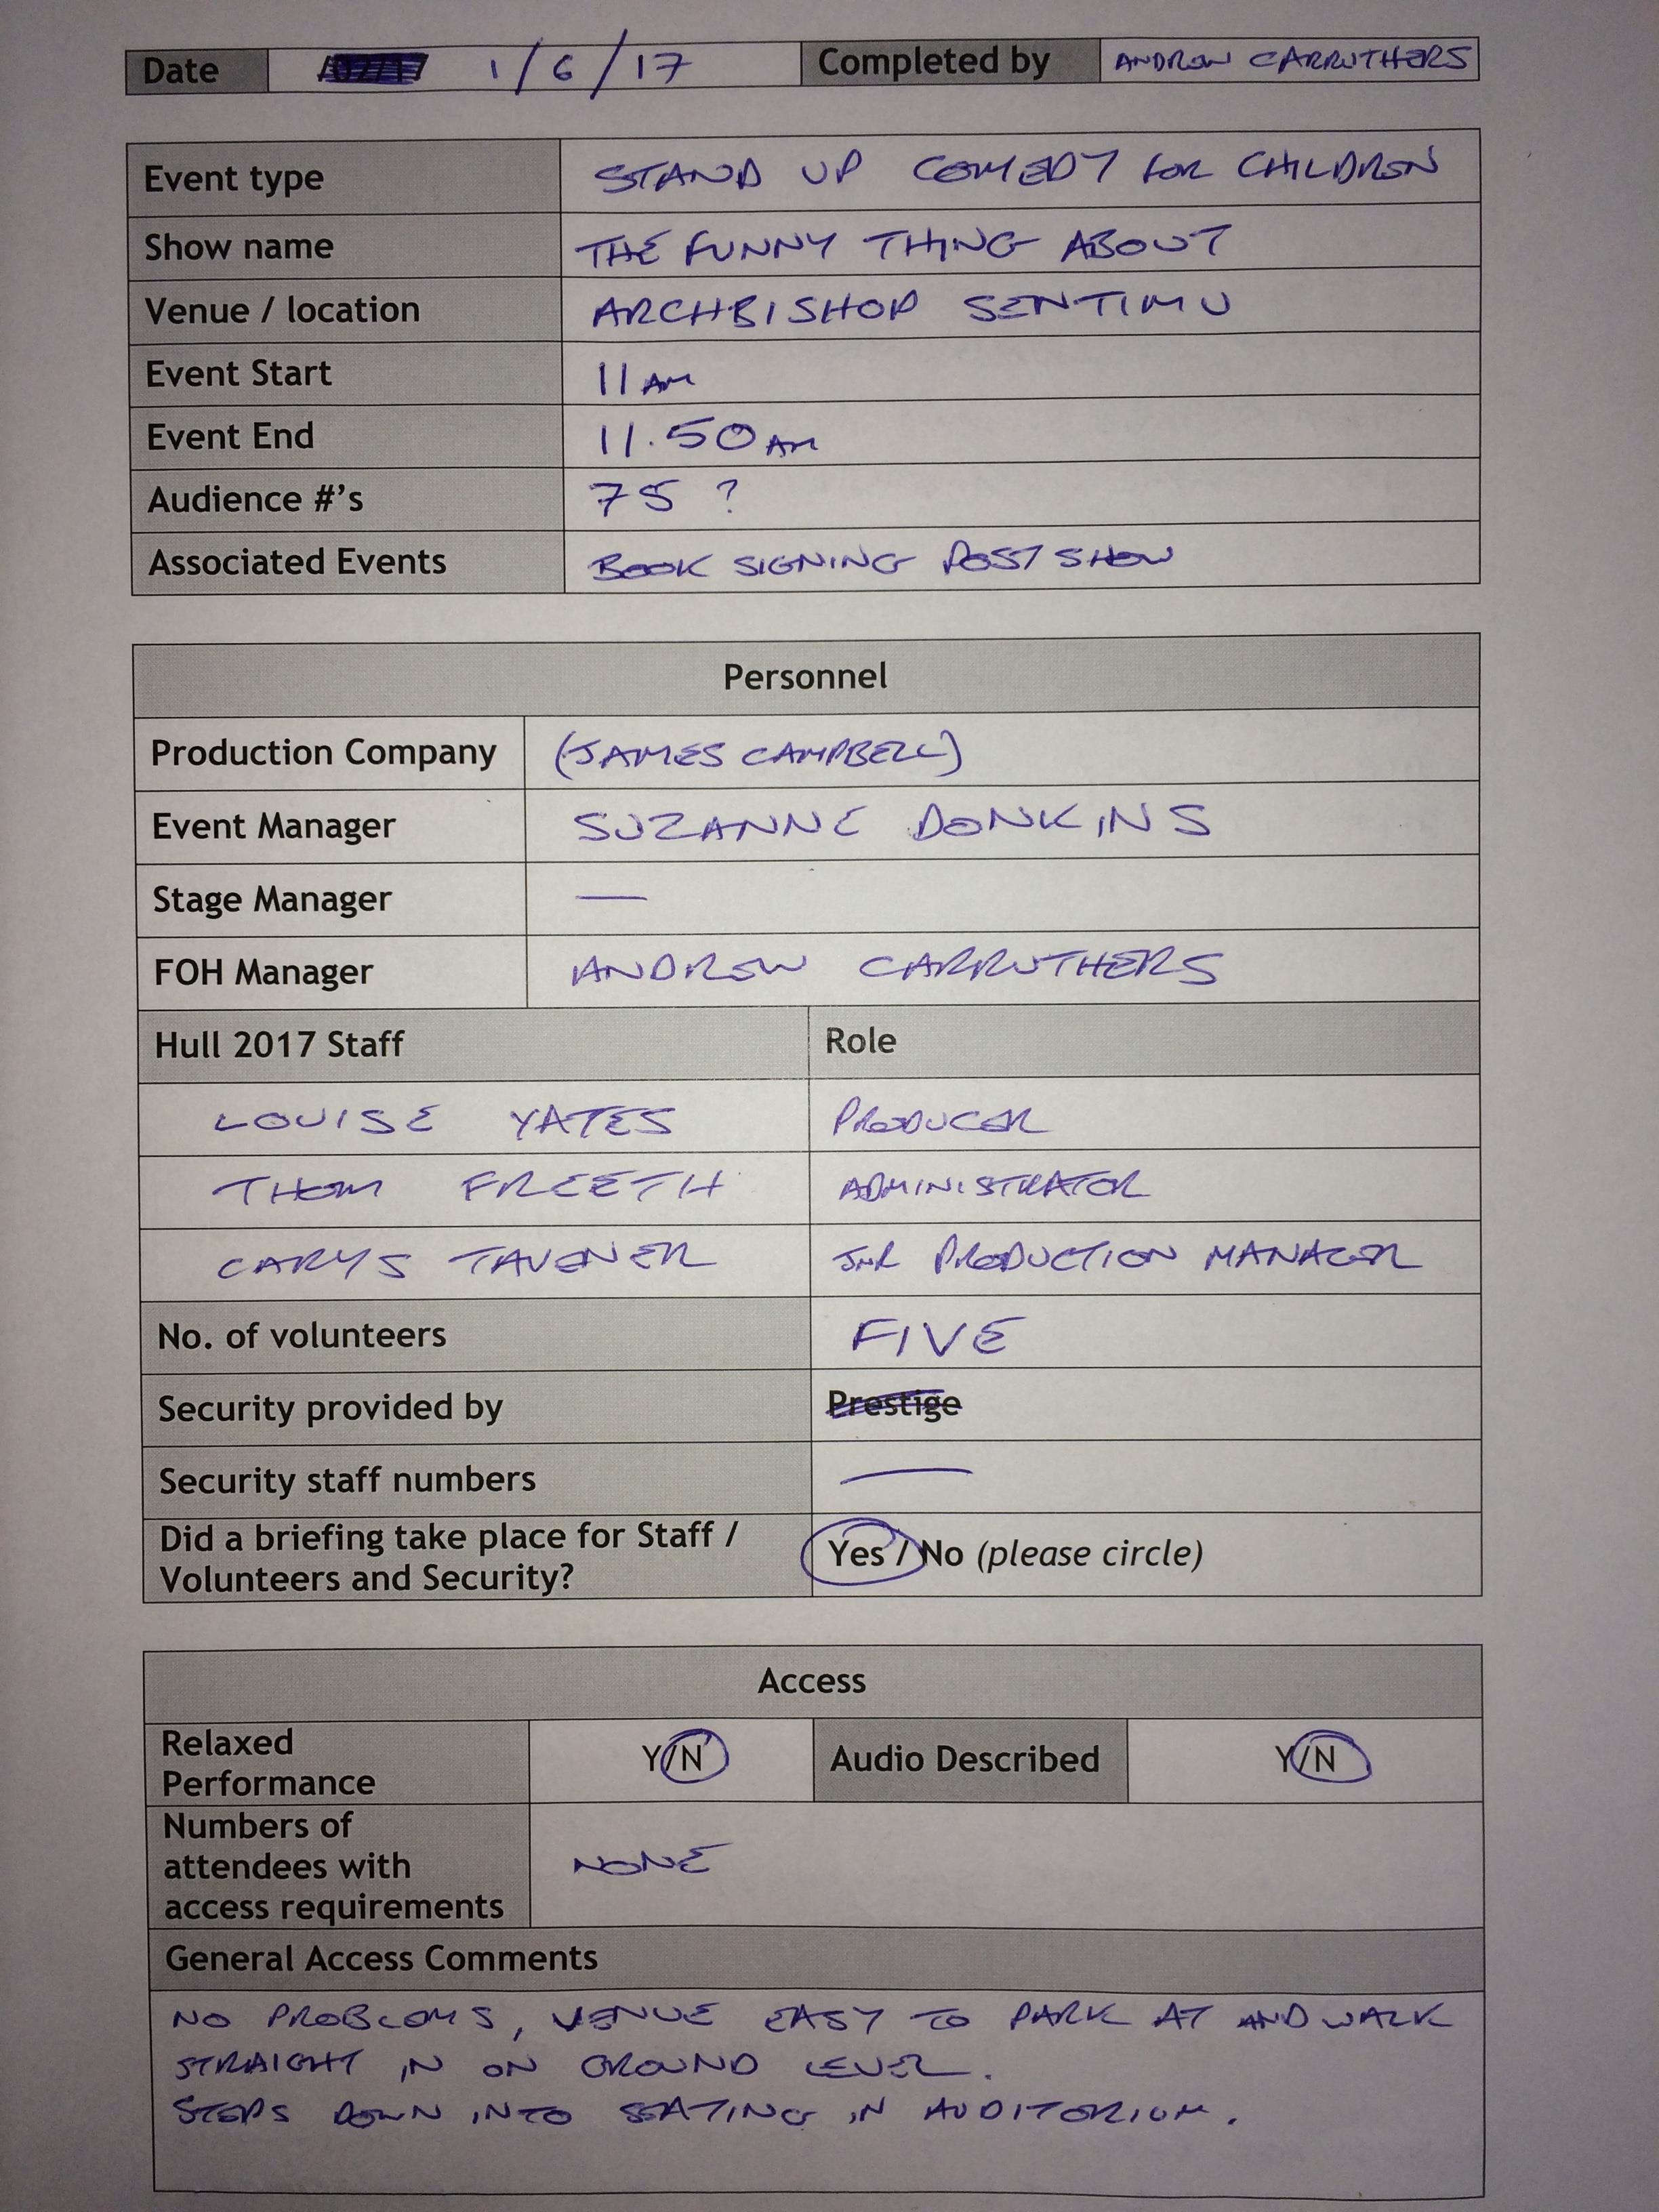 Date 1/6/17 Completed by ANDREW CARRUTHERS
Event type STAND UP COMEDY FOR CHILDREN
Show name THE FUNNY THING ABOUT
Venue / location ARCHBISHOP SENTIMU
Event Start 11AM
Event End 11.50AM
Audience #'s 75 ?
Associated Events BOOK SIGNING POST SHOW
Personnel
Production Company (JAMES CAMPBELL)
Event Manager SUZANNE DONKINS
Stage Manager —
FOH Manager ANDREW CARRUTHERS
Hull 2017 Staff Role
LOUISE YATES PRODUCER
THOM FREETH ADMINISTRATOR
CARYS TAVENER JNR PRODUCTION MANAGER
No. of volunteers FIVE
Security provided by Prestige
Security staff numbers —
Did a briefing take place for Staff /
Volunteers and Security? Yes / No (please circle)
Access
Relaxed
Performance Y/N Audio Described Y/N
Numbers of
attendees with
access requirements NONE
General Access Comments
NO PROBLEMS, VENUE EASY TO PARK AT AND WALK
STRAIGHT IN ON GROUND LEVEL.
STEPS DOWN INTO SEATING IN AUDITORIUM.